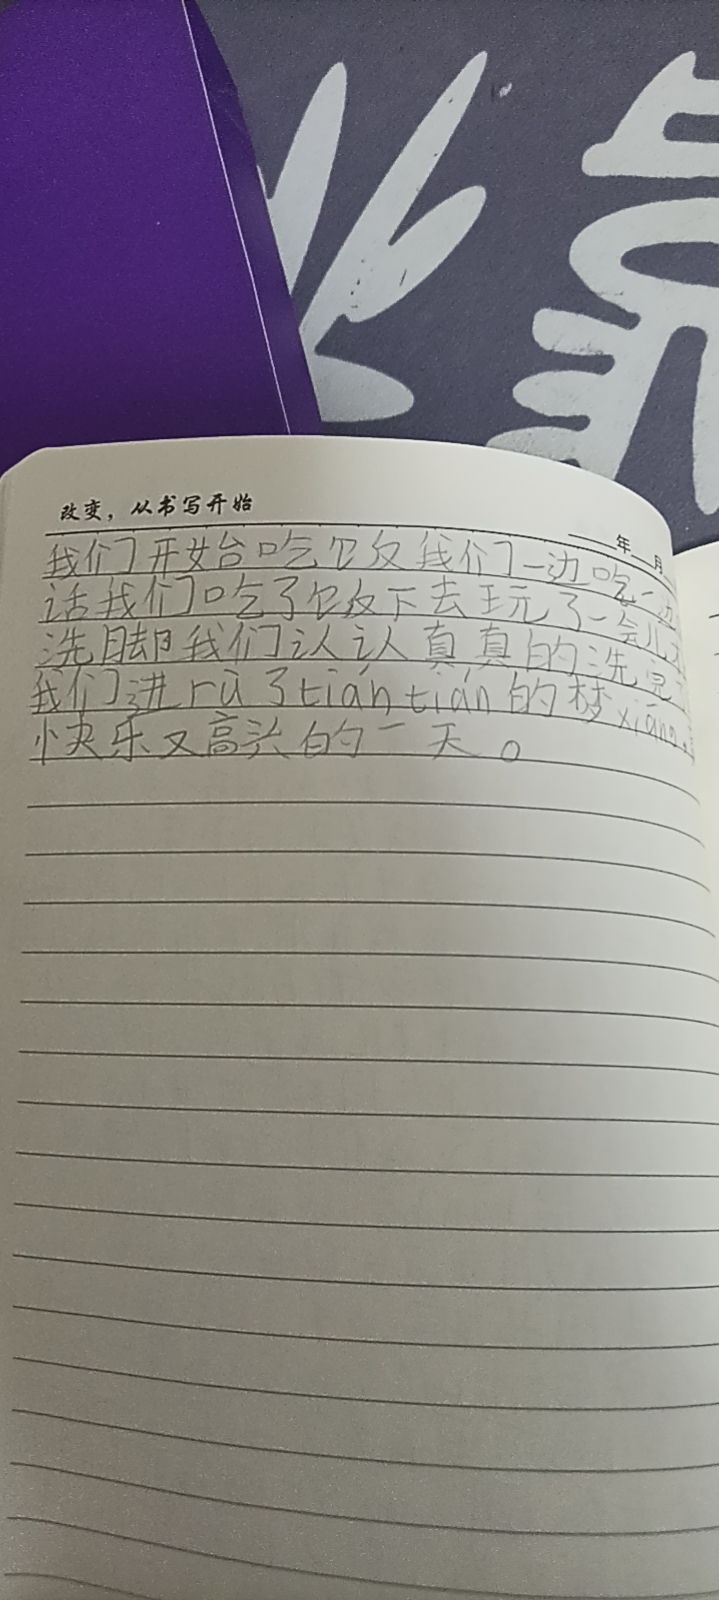 改变，从书写开始
年 月
我们开始吃饭我们一边吃一边
话我们吃了饭下去玩了一会儿
洗脚我们认认真真的洗完
我们进rù了tián tián的梦xiāng。
快乐又高兴的一天。